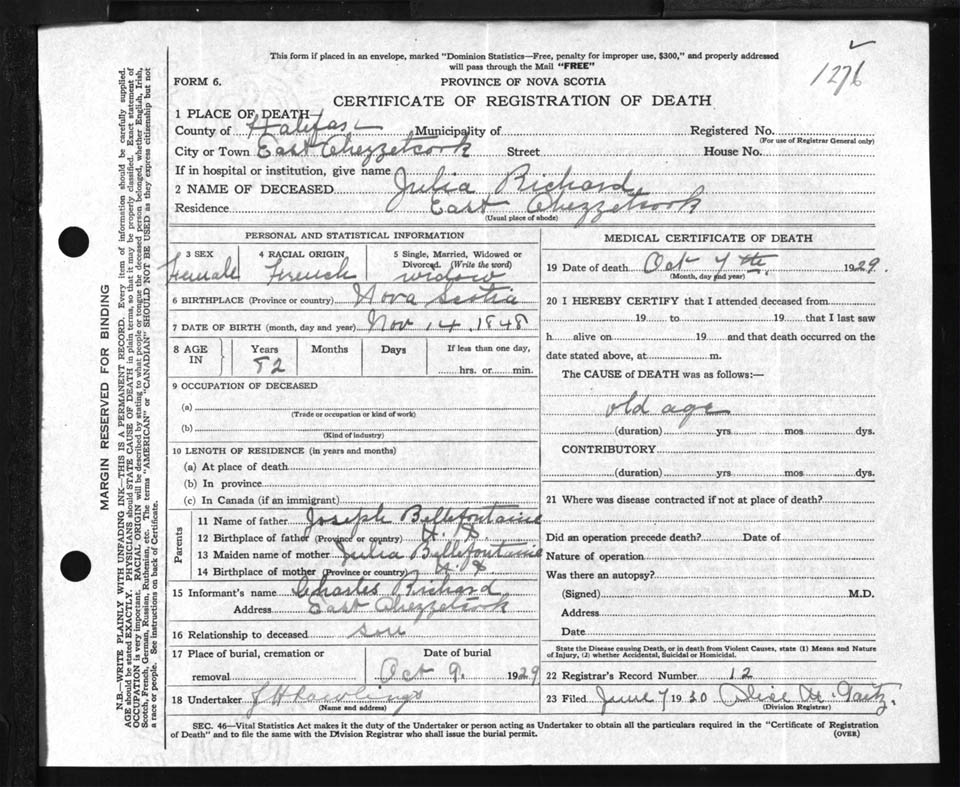 This form if placed in an envelope, marked "Dominion Statistics—Free, penalty for improper use, $300," and properly addressed
will pass through the Mail "FREE"
1276
FORM 6.
PROVINCE OF NOVA SCOTIA
CERTIFICATE OF REGISTRATION OF DEATH
1 PLACE OF DEATH
County of Halifax Municipality of Registered No.
(For use of Registrar General only)
City or Town East Chezzetcook Street House No.
If in hospital or institution, give name
2 NAME OF DECEASED Julia Richard
Residence East Chezzetcook
(Usual place of abode)
PERSONAL AND STATISTICAL INFORMATION
3 SEX Female
4 RACIAL ORIGIN French
5 Single, Married, Widowed or
Divorced. (Write the word)
widow
6 BIRTHPLACE (Province or country) Nova Scotia
7 DATE OF BIRTH (month, day and year) Nov 14, 1848
8 AGE IN Years Months Days If less than one day,
hrs. or min.
9 OCCUPATION OF DECEASED
(a)
(Trade or occupation or kind of work)
(b)
(Kind of industry)
10 LENGTH OF RESIDENCE (in years and months)
(a) At place of death
(b) In province
(c) In Canada (if an immigrant)
Parents
11 Name of father Joseph Bellefontaine
12 Birthplace of father (Province or country) N. S.
13 Maiden name of mother Julia Bellefontaine
14 Birthplace of mother (Province or country) N. S
15 Informant's name Charles Richard
Address East Chezzetcook
16 Relationship to deceased son
17 Place of burial, cremation or
removal
Date of burial
Oct 9. 1929
18 Undertaker J H Rawlings
(Name and address)
MEDICAL CERTIFICATE OF DEATH
19 Date of death Oct 7th. 1929.
(Month, day and year)
20 I HEREBY CERTIFY that I attended deceased from
19 to 19 that I last saw
h alive on 19 and that death occurred on the
date stated above, at m.
The CAUSE of DEATH was as follows:—
old age
(duration) yrs mos dys.
CONTRIBUTORY
(duration) yrs. mos. dys.
21 Where was disease contracted if not at place of death?
Did an operation precede death? Date of
Nature of operation
Was there an autopsy?
(Signed) M.D.
Address
Date
State the Disease causing Death, or in death from Violent Causes, state (1) Means and Nature
of Injury, (2) whether Accidental, Suicidal or Homicidal.
22 Registrar's Record Number 12
23 Filed June 7 1930 Alice M.
(Division Registrar)
SEC. 46—Vital Statistics Act makes it the duty of the Undertaker or person acting as Undertaker to obtain all the particulars required in the "Certificate of Registration
of Death" and to file the same with the Division Registrar who shall issue the burial permit.
(OVER)
MARGIN RESERVED FOR BINDING
N.B.—WRITE PLAINLY WITH UNFADING INK—THIS IS A PERMANENT RECORD. Every item of information should be carefully supplied.
AGE should be stated EXACTLY. PHYSICIANS should STATE CAUSE OF DEATH in plain terms, so that it may be properly classified. Exact statement of
OCCUPATION is very important. RACIAL ORIGIN will be described by stating to what people or tongue the deceased person belonged, whether English, Irish,
Scotch, French, German, Russian, Ruthenian, etc. The terms "AMERICAN" or "CANADIAN" SHOULD NOT BE USED as they express citizenship but not
a race or people. See instructions on back of Certificate.